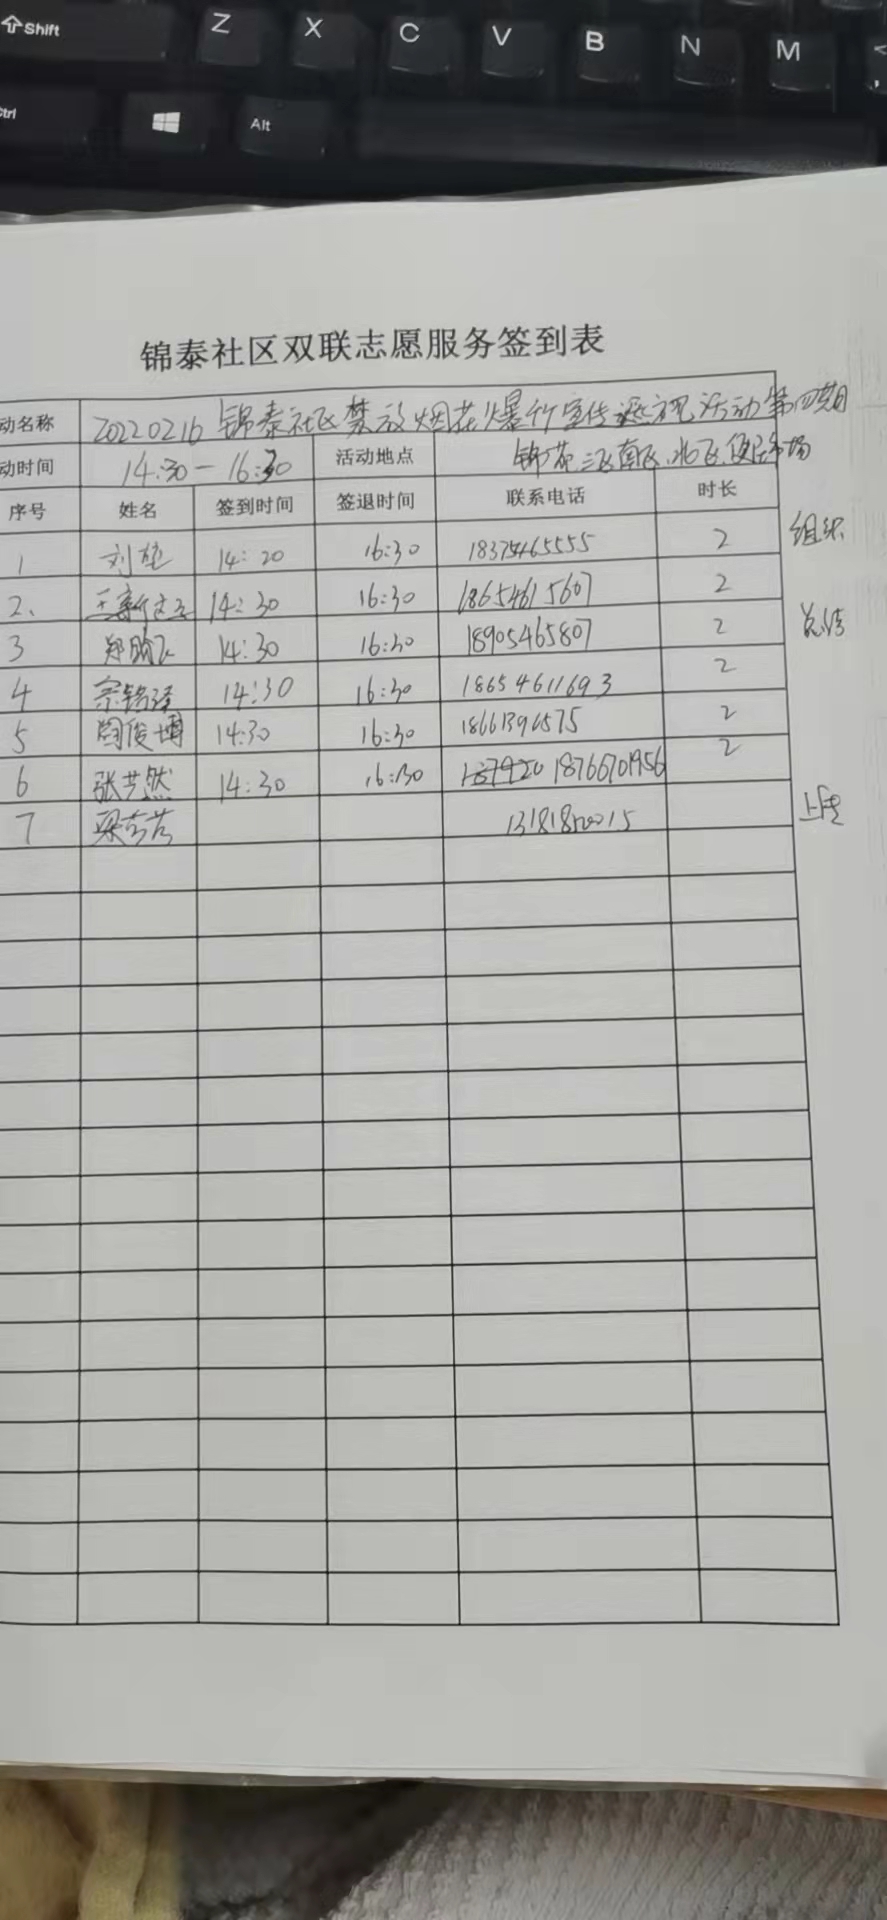 Shift Z X C V B N M
Ctrl Alt
锦泰社区双联志愿服务签到表
动名称 20220216 锦泰社区禁放烟花爆竹宣传巡视活动第四期
动时间 14:30-16:30 活动地点 锦苑三区南区、北区、便民市场
序号 姓名 签到时间 签退时间 联系电话 时长
1 刘 14:20 16:30 18375465555 2 组织
2、 王 14:30 16:30 18654615607 2
3 郑 14:30 16:30 18905465807 2 总结
4 宗铭泽 14:30 16:30 18654611693 2
5 阎俊博 14:30 16:30 2
6 张艺然 14:30 16:30 18766701956 2
7 梁芳芳 上传